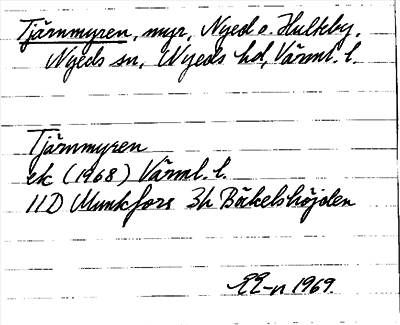 Tjärnmyren, myr, Nyed o. Hulteby,
Nyeds sn, Nyeds hd, Värml. l.
Tjärnmyren
ek (1968) Värml. l.
11D Munkfors 3h Bäkelshöjden
EE-n 1969.